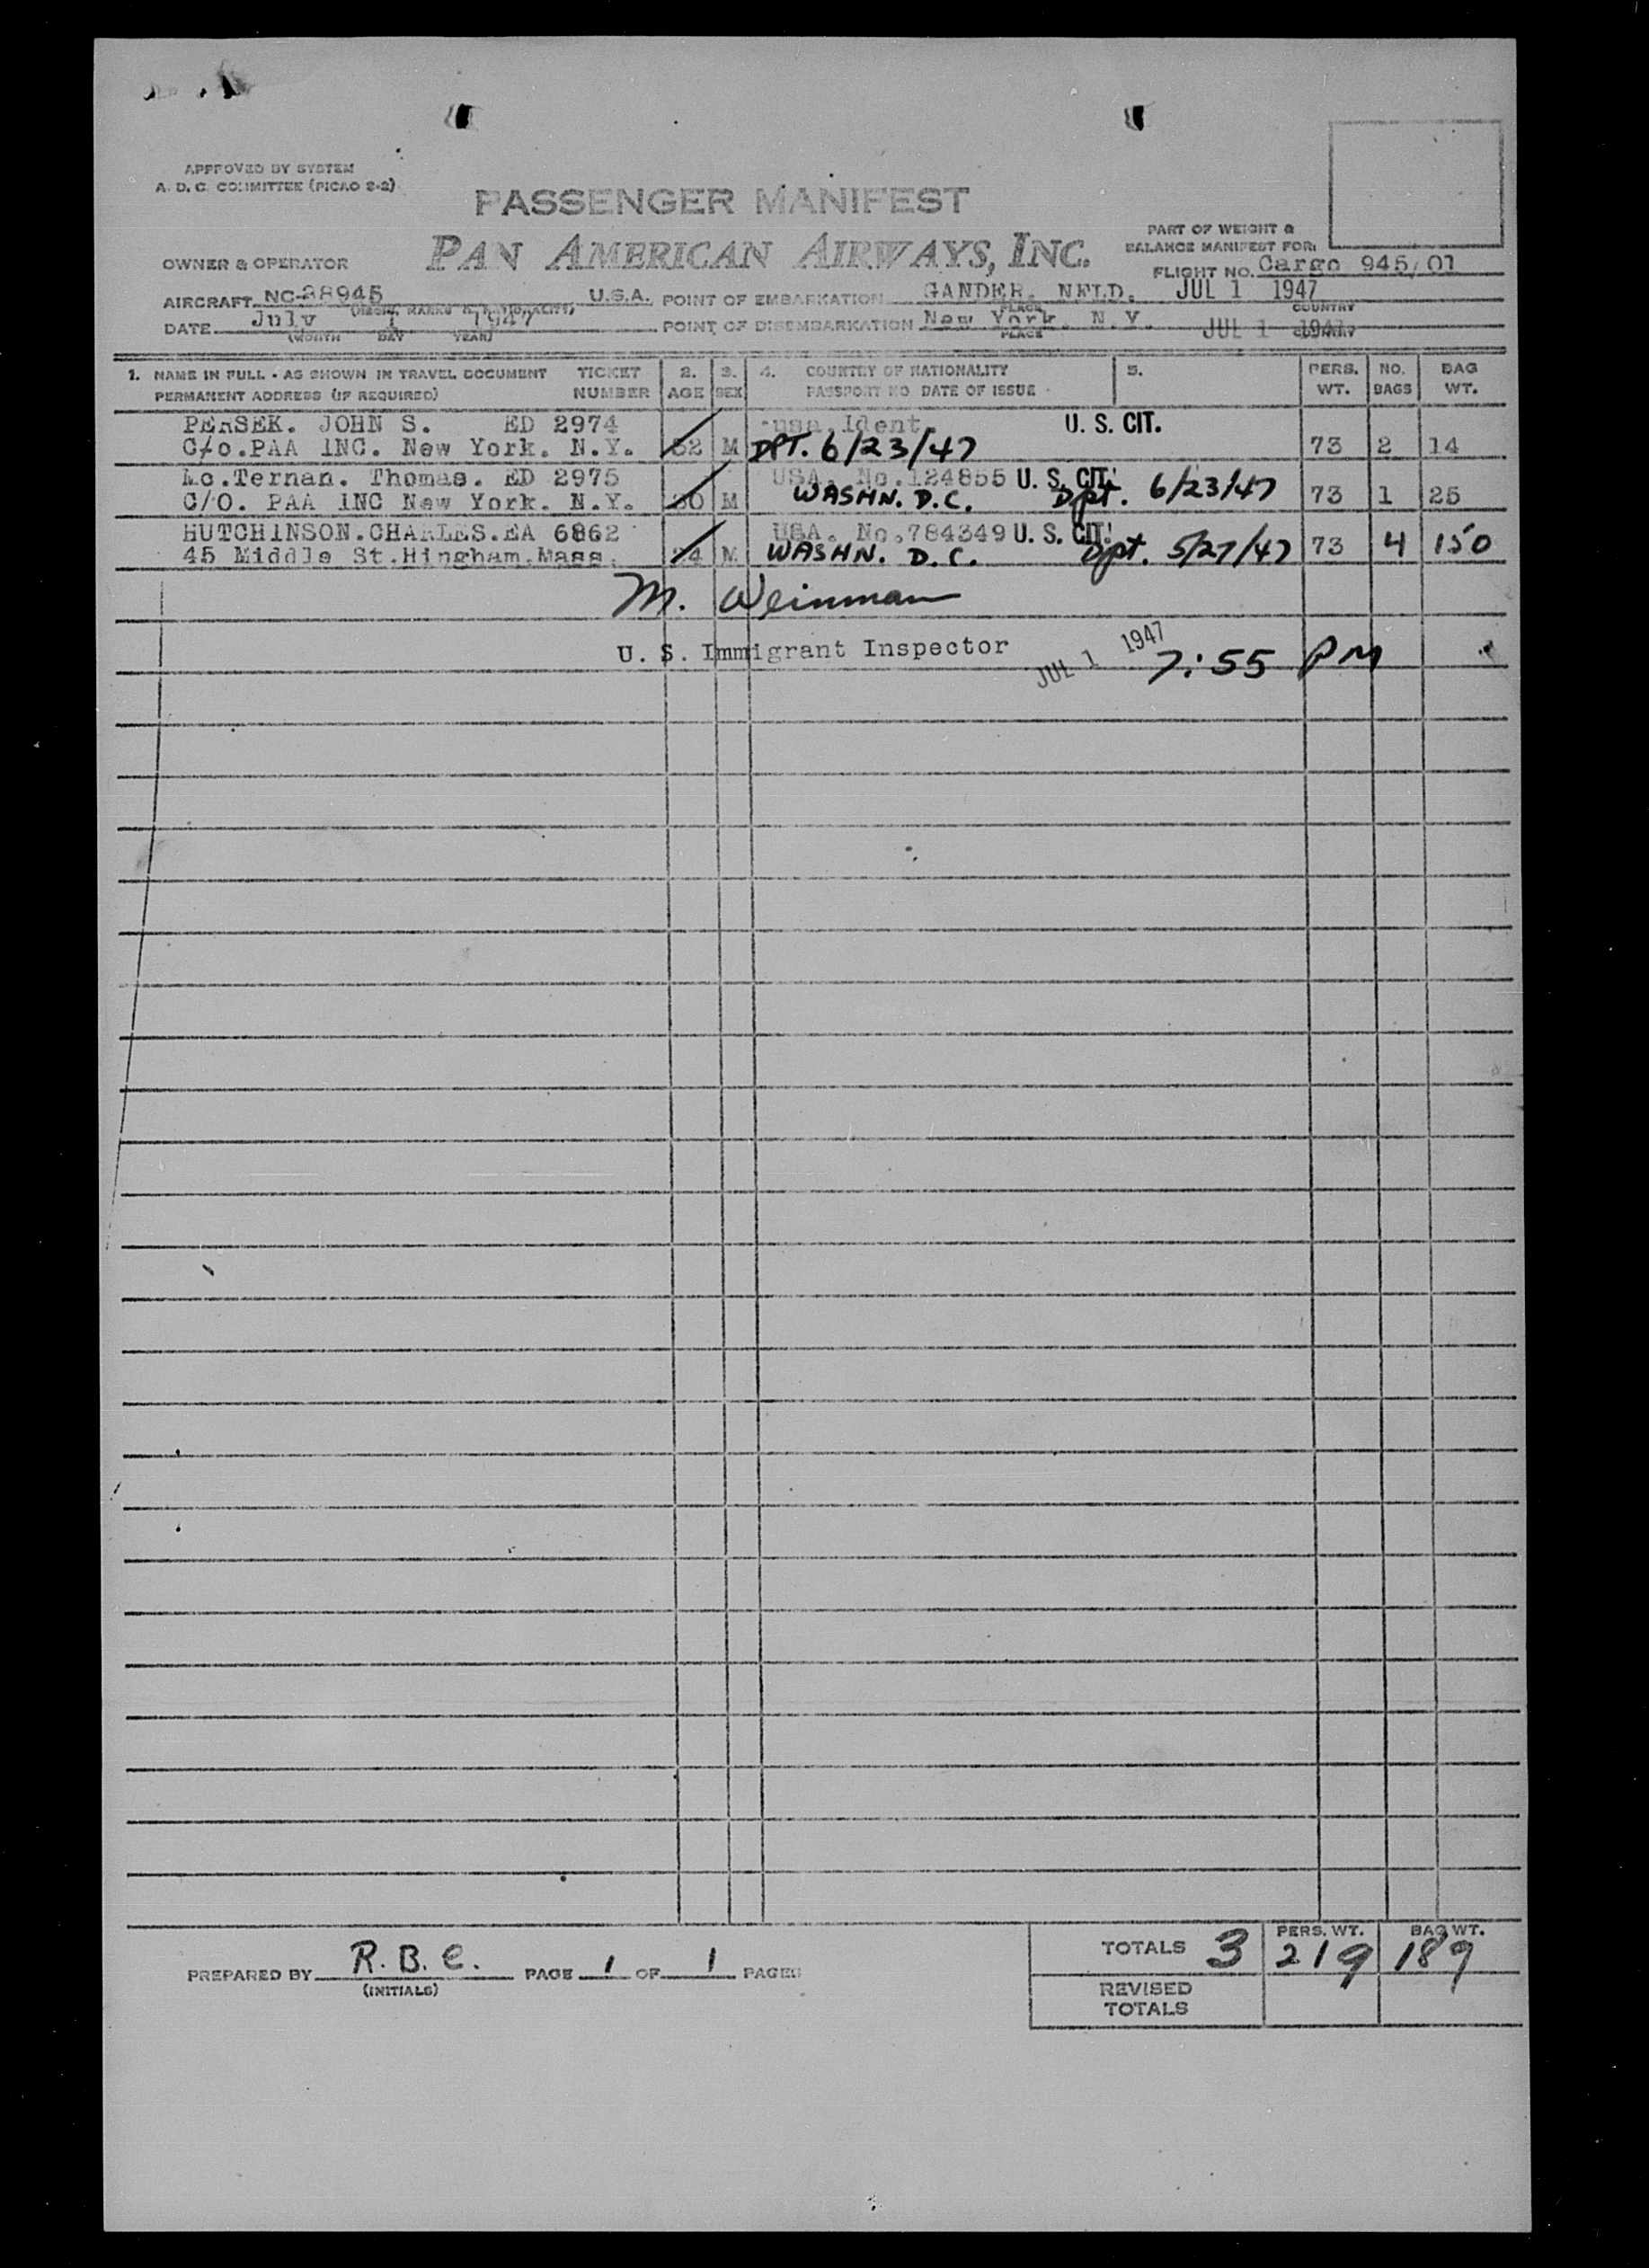 APPROVED BY SYSTEM
A. D. C. COMMITTEE (PICAO 2-2)
PASSENGER MANIFEST
PAN AMERICAN AIRWAYS, INC.
PART OF WEIGHT &
BALANCE MANIFEST FOR:
OWNER & OPERATOR
FLIGHT NO. Cargo 945/01
AIRCRAFT NC-88945 U.S.A. POINT OF EMBARKATION GANDER. NFLD. JUL 1 1947
PLACE COUNTRY
DATE July 1 1947 POINT OF DISEMBARKATION New York. N.Y. JUL 1 1947
(MONTH DAY YEAR) PLACE COUNTRY
1. NAME IN FULL - AS SHOWN IN TRAVEL DOCUMENT TICKET 2. 3. 4. COUNTRY OF NATIONALITY 5. PERS. NO. BAG
PERMANENT ADDRESS (IF REQUIRED) NUMBER AGE SEX PASSPORT NO DATE OF ISSUE WT. BAGS WT.
PERSEK. JOHN S. ED 2974 usa.Ident. U. S. CIT.
C/o.PAA INC. New York. N.Y. 32 M DPT. 6/23/47 73 2 14
Mc.Ternan. Thomas. ED 2975 USA. No.124855 U. S. CIT.
C/O. PAA INC New York. N.Y. 30 M WASHN. D.C. Dpt. 6/23/47 73 1 25
HUTCHINSON.CHARLES.EA 6862 USA. No.784349 U. S. CIT.
45 Middle St.Hingham.Mass. M WASHN. D.C. Dpt. 5/27/47 73 4 150
M. Weinman
U. S. Immigrant Inspector JUL 1 1947 7:55 PM
TOTALS 3 PERS. WT. 219 BAG WT. 189
PREPARED BY R.B.C. PAGE 1 OF 1 PAGES
(INITIALS)
REVISED
TOTALS